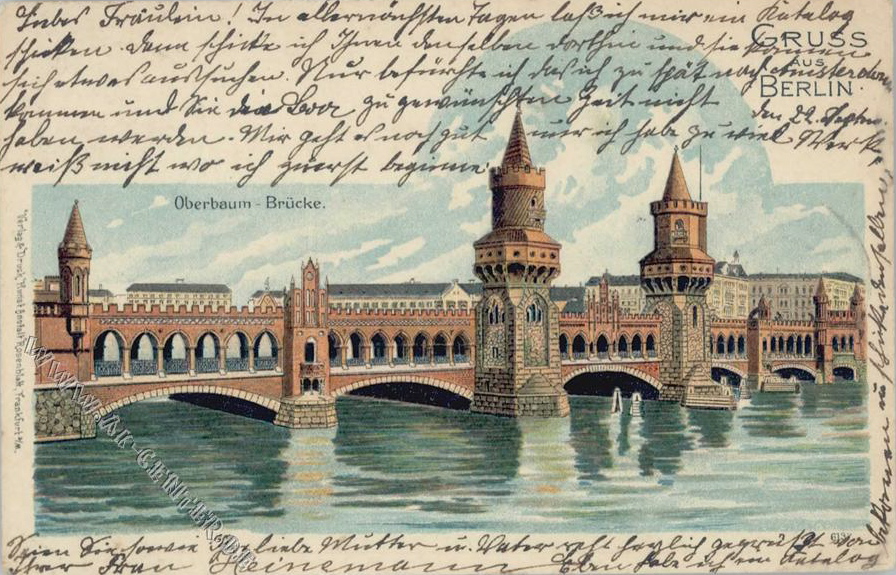 Liebes Fräulein! In allernächsten Tagen laß ich mir ein Katalog
schicken. Dann schicke ich Ihnen denselben dorthin und sie können
sich etwas aussuchen. Nur befürchte ich daß ich zu spät nach Amsterdam
kommen und Sie die zu gewünschten Zeit nicht
haben werden. Mir geht es noch gut nur ich habe zu viel Werk
weiß nicht wo ich zuerst beginne.
GRUSS
AUS
BERLIN.
den 22. Septem
Oberbaum-Brücke.
Verlag & Druck, Kunst-Anstalt Rosenblatt, Frankfurt a/M.
www.AK-CENTER.DE
Seien Sie sowie liebe Mutter u. Vater recht herzlich gegrüßt von
Ihrer Frau Heinemann Eben habe ich ein Katalog